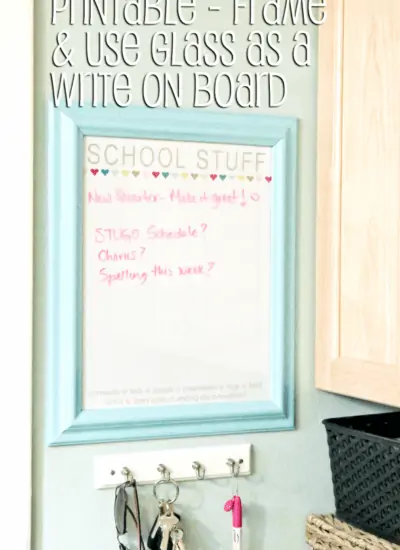 PRINTABLE - FRAME
& USE GLASS AS A
WRITE ON BOARD
SCHOOL STUFF
New Quarter - Make it great!
STUGO Schedule?
Chorus?
Spelling this week?